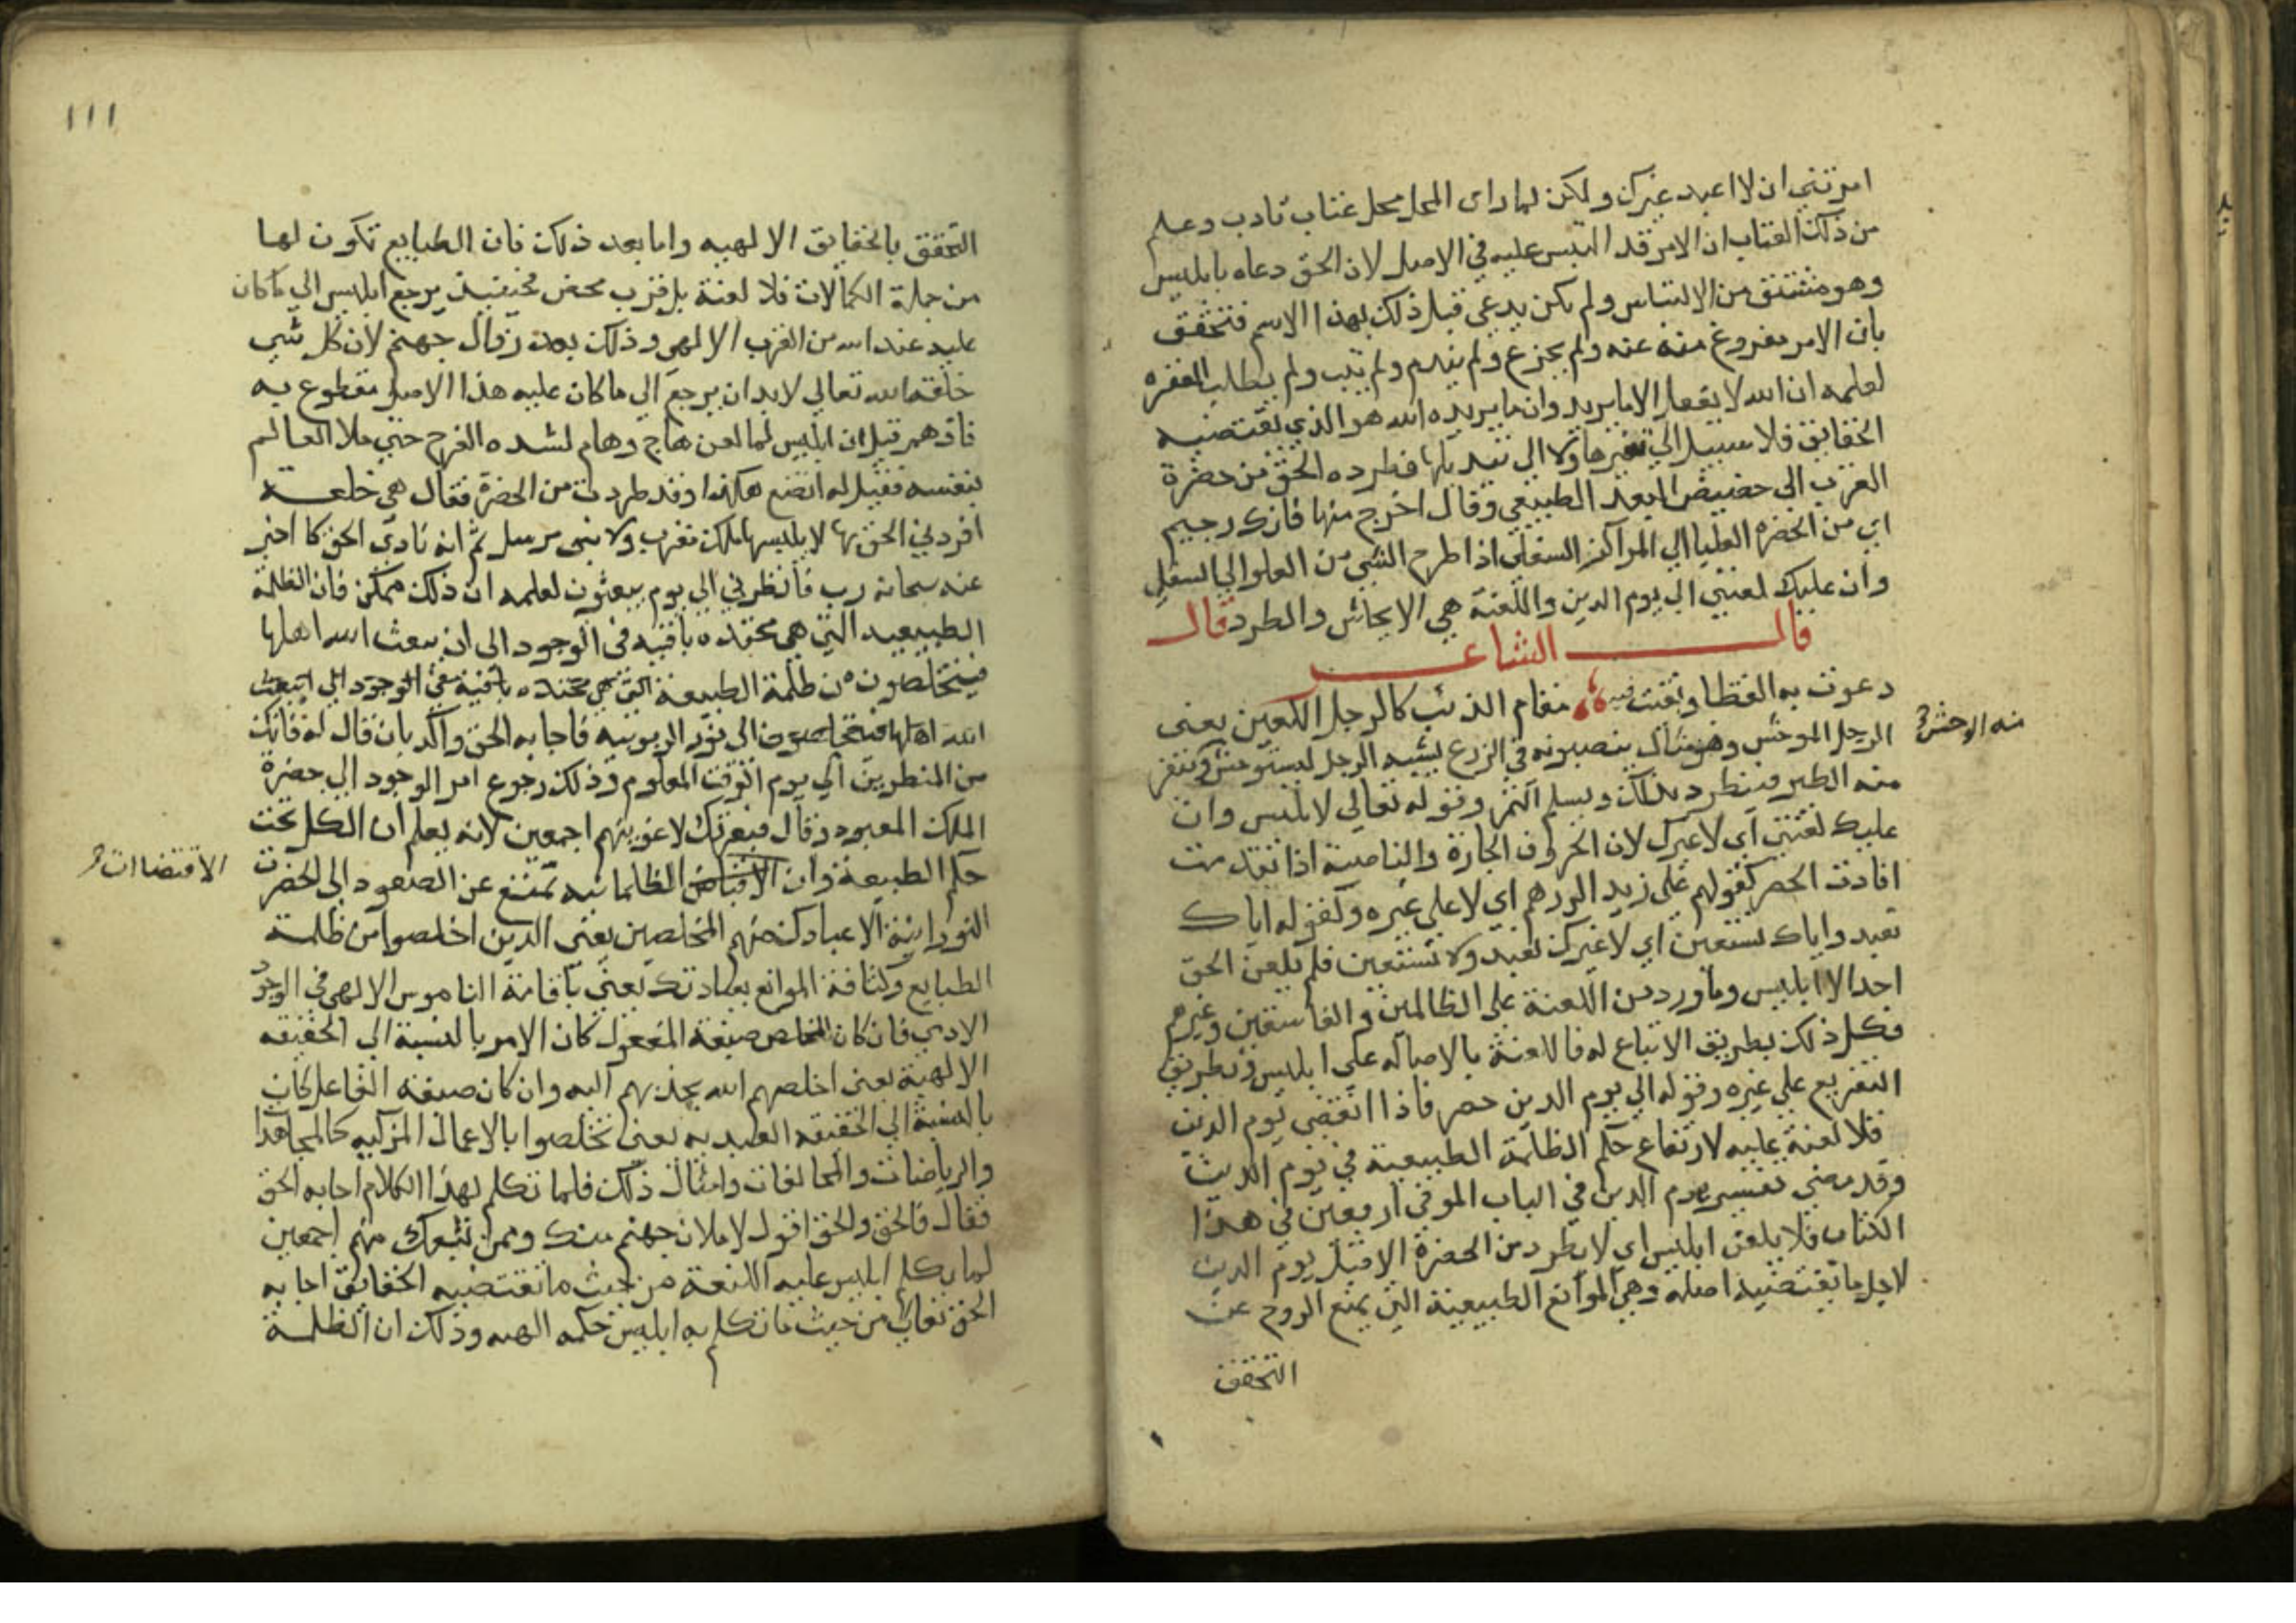 امرتني ان لا اعبد غيرك ولكن لما راى المحل محل عتاب تادب وعلم
من ذلك العتاب ان الامر قد التبس عليه في الاصل لان الحق دعاه بابليس
وهو مشتق من الالتباس ولم يكن يدعى قبل ذلك بهذا الاسم فتحقق
بان الامر مفروغ منه عنه ولم يجزع ولم يندم ولم يتب ولم يطلب المغفره
لعلمه ان الله لا يفعل الا ما يريد وان ما يريده الله هو الذي تقتضيه
الحقايق فلا سبيل الى تغيرها ولا الى تبديلها فطرده الحق من حضرة
القرب الى حضيض البعد الطبيعي وقال اخرج منها فانك رجيم
اي من الحضره العليا الى المراكز السفلى اذا طرح الشي من العلو الى السفل
وان عليك لعنتي الى يوم الدين واللعنة هي الايحاش والطرد قال
قال الشاعر
دعوت به القطا وبقيت فيه مقام الذئب كالرجل اللعين يعنى
الرجل الموحش وهو مثال ينصبونه في الزرع يشبه الرجل ليستوحش وتنفر
منه الوحش
منه الطير فينطرد بذلك ويسلم الثمر وقوله تعالي لابليس وان
عليك لعنتي اي لا غيرك لان الحروف الجارة والناصبة اذا تقدمت
افادت الحصر كقولهم على زيد الدرهم اي لا على غيره وكقوله اياك
نعبد واياك نستعين اي لا غيرك نعبد ولا نستعين فلم يلعن الحق
احدا الا ابليس وما ورد من اللعنة على الظالمين والفاسقين وغيرهم
فكل ذلك بطريق الاتباع له فاللعنة بالاصاله على ابليس وبطريق
التفريع على غيره وقوله الي يوم الدين حصر فاذا انقضى يوم الدين
فلا لعنة عليه لارتفاع حكم الظلمة الطبيعية في يوم الدين
وقد مضى تفسير يوم الدين في الباب الموفي اربعين في هذا
الكتاب فلا يلعن ابليس اي لا يطرد من الحضرة الا قبل يوم الدين
لاجل ما يقتضيه اصله وهي الموانع الطبيعية التي يمنع الروح عن
التحقق
١١١
التحقق بالحقايق الالهيه واما بعد ذلك فان الطبايع تكون لها
من جملة الكمالات فلا لعنة بل قرب محض فحينئذ يرجع ابليس الي ما كان
عليه عند الله من القرب الالهي وذلك بعد زوال جهنم لان كل شي
خلقه الله تعالي لابد ان يرجع الى ما كان عليه هذا الاصل مقطوع به
فافهم قيل ان ابليس لما لعن هاج وهام لشده الفرح حتى ملا العالم
بنفسه فقيل له اتصنع هكذا وقد طردت من الحضرة فقال هي خلعة
افردني الحق بها لا يلبسها ملك مقرب ولا نبى مرسل ثم انه نادي الحق كما اخبر
عنه سبحانه رب فانظرني الي يوم يبعثون لعلمه ان ذلك ممكن فان الظلمة
الطبيعيه التي هي محتده باقيه في الوجود الى ان يبعث الله اهلها
فيتخلصون من ظلمة الطبيعة التي هي محتده باقية في الوجود الي ان يبعث
الله اهلها فيتخلصون الى نور الربوبيه فاجابه الحق واكد بان قال له فانك
من المنظرين الي يوم الوقت المعلوم وذلك رجوع امر الوجود الي حضرة
الملك المعبود وقال فبعزتك لاغوينهم اجمعين لانه يعلم ان الكل تحت
حكم الطبيعة وان الظلمانيه تمنع عن الصعود الى الحضرت
الاقتضاات
النورانية الا عبادك منهم المخلصين يعنى الذين اخلصوا من ظلمة
الطبايع وكثافة الموانع بعبادتك يعني باقامة الناموس الالهي في الوجود
الادمي فان كان المخلص صيغة المفعول كان الامر بالنسبة الي الحقيقه
الالهية يعنى اخلصهم الله بجذبهم اليه وان كان صيغة الفاعل كان
بالنسبة الى الحقيقه العبديه يعنى تخلصوا بالاعمال المزكيه كالمجاهدات
والرياضات والمخالفات وامثال ذلك فلما تكلم بهذا الكلام اجابه الحق
فقال فالحق والحق اقول لاملان جهنم منك وممن تبعك منهم اجمعين
لما تكلم ابليس عليه اللعنة من حيث ما تقتضيه الحقايق اجابه
الحق تعالى من حيث ما تكلم به ابليس حكمه الهيه وذلك ان الظلمة